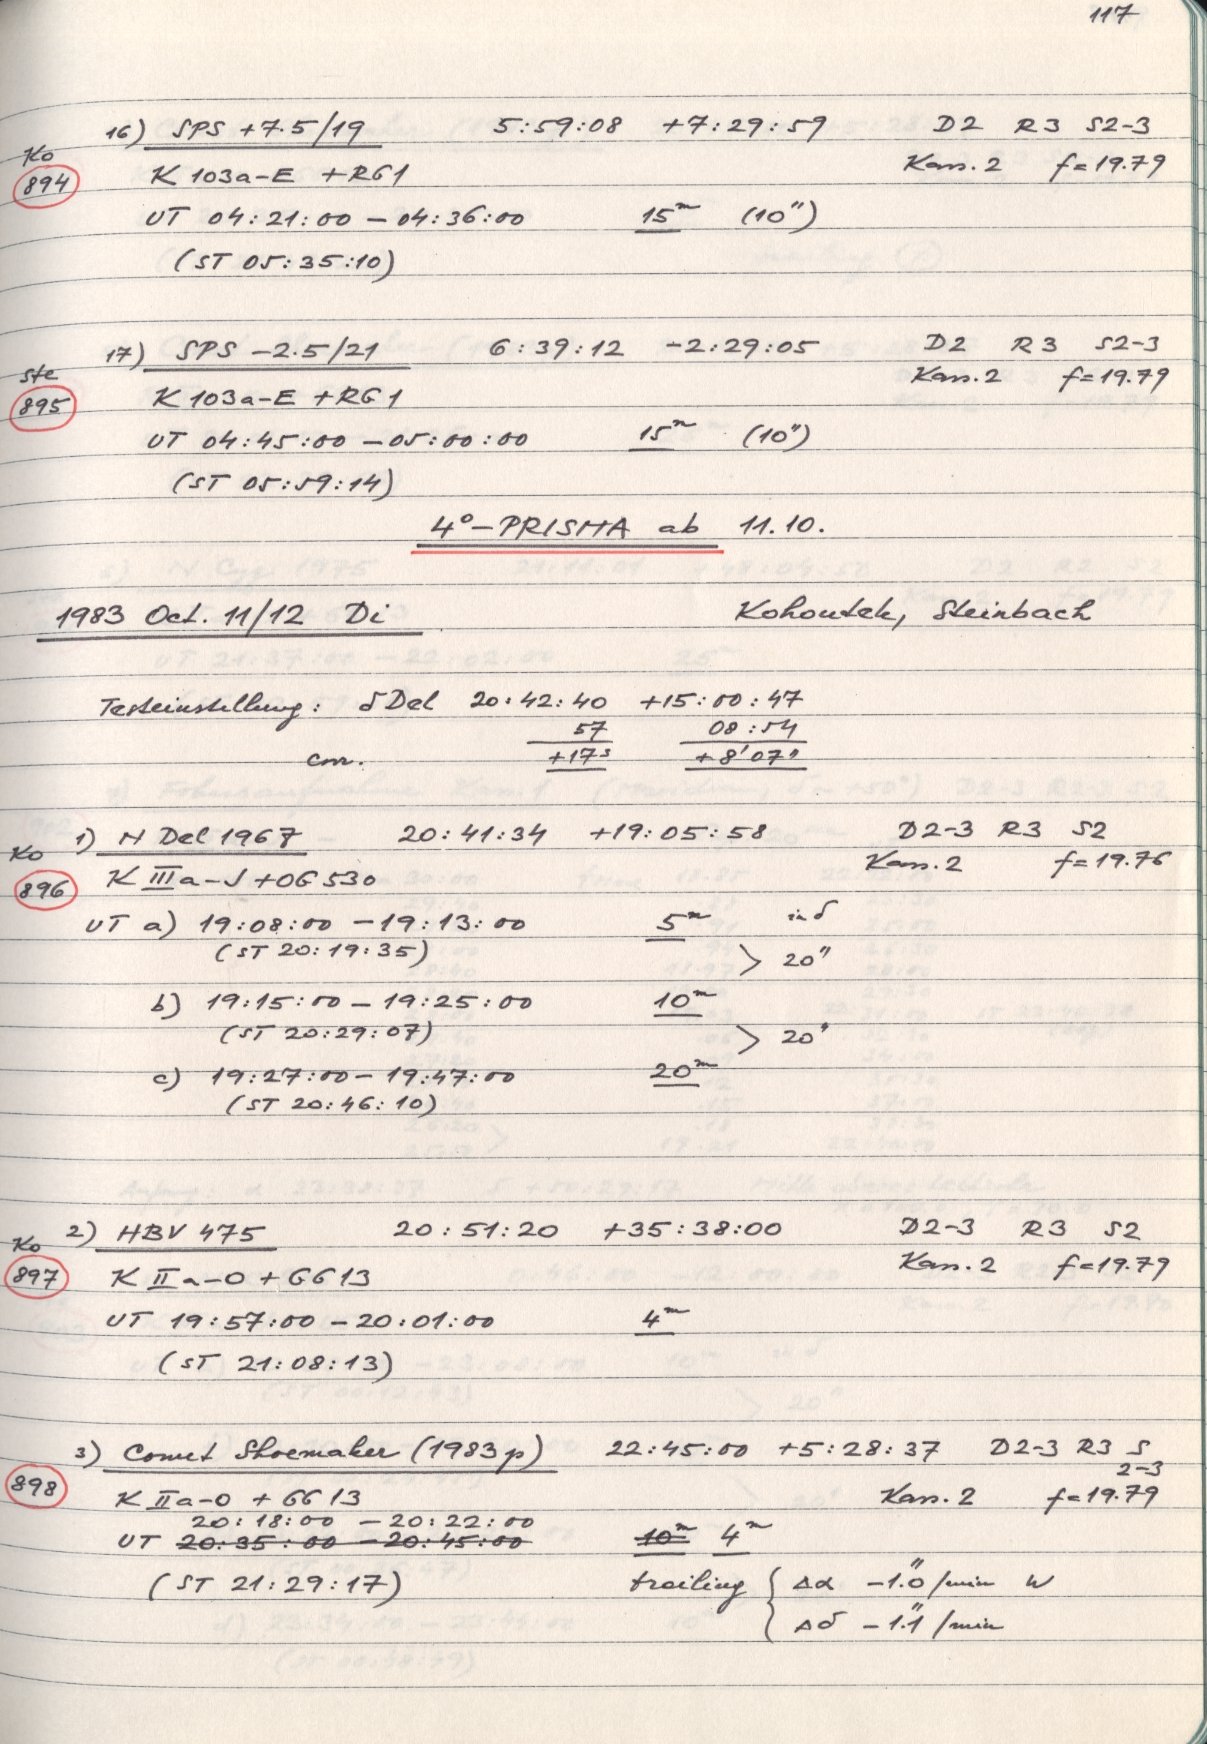 117
16) SPS +7.5/19 5:59:08 +7:29:59 D2 R3 S2-3
Ko
894
K 103a-E +RG1 Kass. 2 f=19.79
UT 04:21:00 – 04:36:00 15m (10")
(ST 05:35:10)
17) SPS -2.5/21 6:39:12 -2:29:05 D2 R3 S2-3
Ste
895
K 103a-E +RG1 Kass. 2 f=19.79
UT 04:45:00 – 05:00:00 15m (10")
(ST 05:59:14)
4°-PRISMA ab 11.10.
1983 Oct. 11/12 Di Kohoutek, Steinbach
Testeinstellung: δ Del 20:42:40 +15:00:47
57 08:54
corr. +17s +8'07"
1) N Del 1967 20:41:34 +19:05:58 D2-3 R3 S2
Ko
896
K IIIa-J +OG 530 Kass. 2 f=19.76
UT a) 19:08:00 – 19:13:00 5m in δ
(ST 20:19:35) > 20"
b) 19:15:00 – 19:25:00 10m
(ST 20:29:07) > 20"
c) 19:27:00 – 19:47:00 20m
(ST 20:46:10)
2) HBV 475 20:51:20 +35:38:00 D2-3 R3 S2
Ko
897
K IIa-O + GG13 Kass. 2 f=19.79
UT 19:57:00 – 20:01:00 4m
(ST 21:08:13)
3) Comet Shoemaker (1983p) 22:45:00 +5:28:37 D2-3 R3 S
2-3
898
K IIa-O + GG13 Kass. 2 f=19.79
20:18:00 – 20:22:00
UT 20:35:00 – 20:45:00 10m 4m
(ST 21:29:17) trailing { Δα -1."0/min W
Δδ -1."1/min